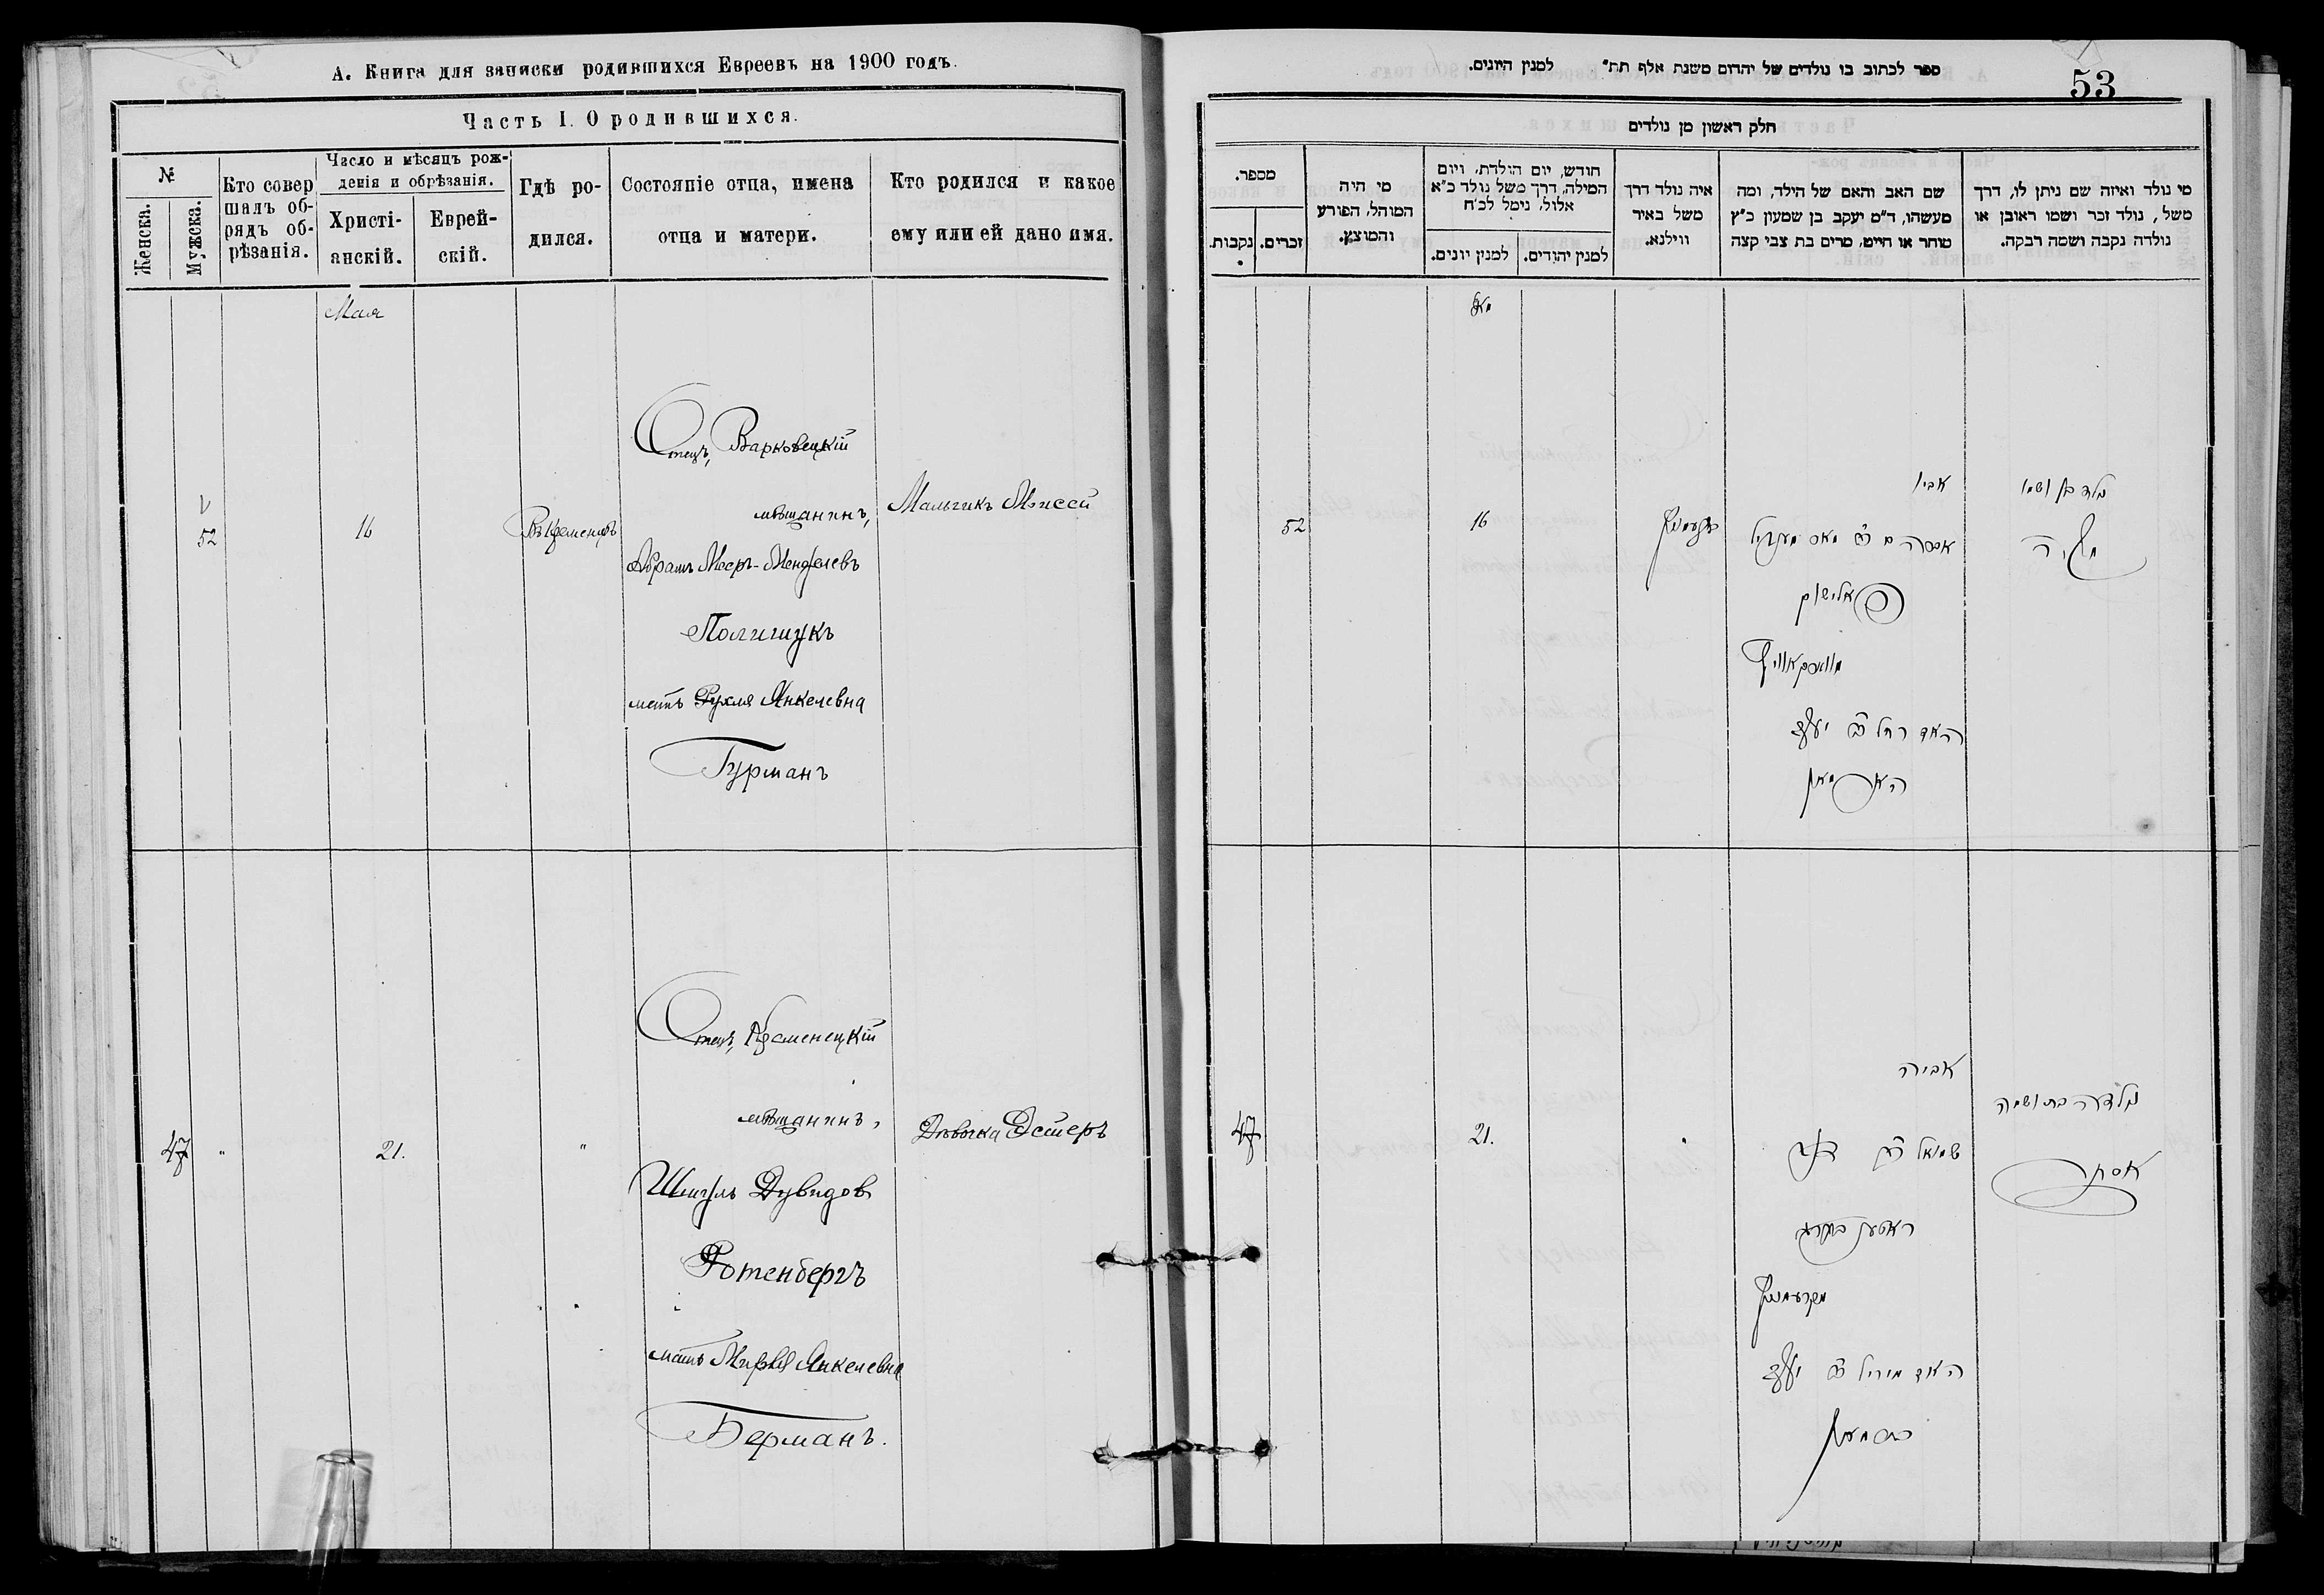 А. Книга для записки родившихся Евреевъ на 1900 годъ.
Часть I. О родившихся.
№
Женска.
Мужска.
Кто совер
шалъ об-
рядъ об-
рѣзанія.
Число и мѣсяцъ рож-
денія и обрѣзанія.
Христі-
анскій.
Еврей-
скій.
Гдѣ ро-
дился.
Состояніе отца, имена
отца и матери.
Кто родился и какое
ему или ей дано имя.
Мая
52
16
Отецъ, Варковецкій
мѣщанинъ,
Абрамъ Меер-Менделевъ
Полищукъ
мать Рухля Янкелевна
Гурманъ
Мальчикъ Моисей
47
"
21.
"
Отецъ, Кременецкій
мѣщанинъ,
Шмуль Дувидов
Ротенбергъ
мать Янкелевна
Берманъ.
Дѣвочка Эстеръ
53
ספר לכתוב בו נולדים של יהדום משנת אלף תת״ למנין היונים.
חלק ראשון מן נולדים
מספר.
נקבות.
זכרים.
מי היה
המוהל, הפורע
והמוצץ.
חודש, יום הולדת, ויום
המילה, דרך משל נולד כ״א
אלול, נימל לכ״ח
למנין יונים.
למנין יהודים.
איה נולד דרך
משל באיר
ווילנא.
שם האב והאם של הילד, ומה
מעשהו, ד״מ יעקב בן שמעון כ״ץ
סוחר או חייט, מרים בת צבי קצה
מי נולד ואיזה שם ניתן לו, דרך
משל, נולד זכר ושמו ראובן או
נולדה נקבה ושמה רבקה.
מאי
52
16
אביו
נולד בן ושמו
משה
47
21.
"
אביה
שמואל
נולדה בת ושמה
אסתר